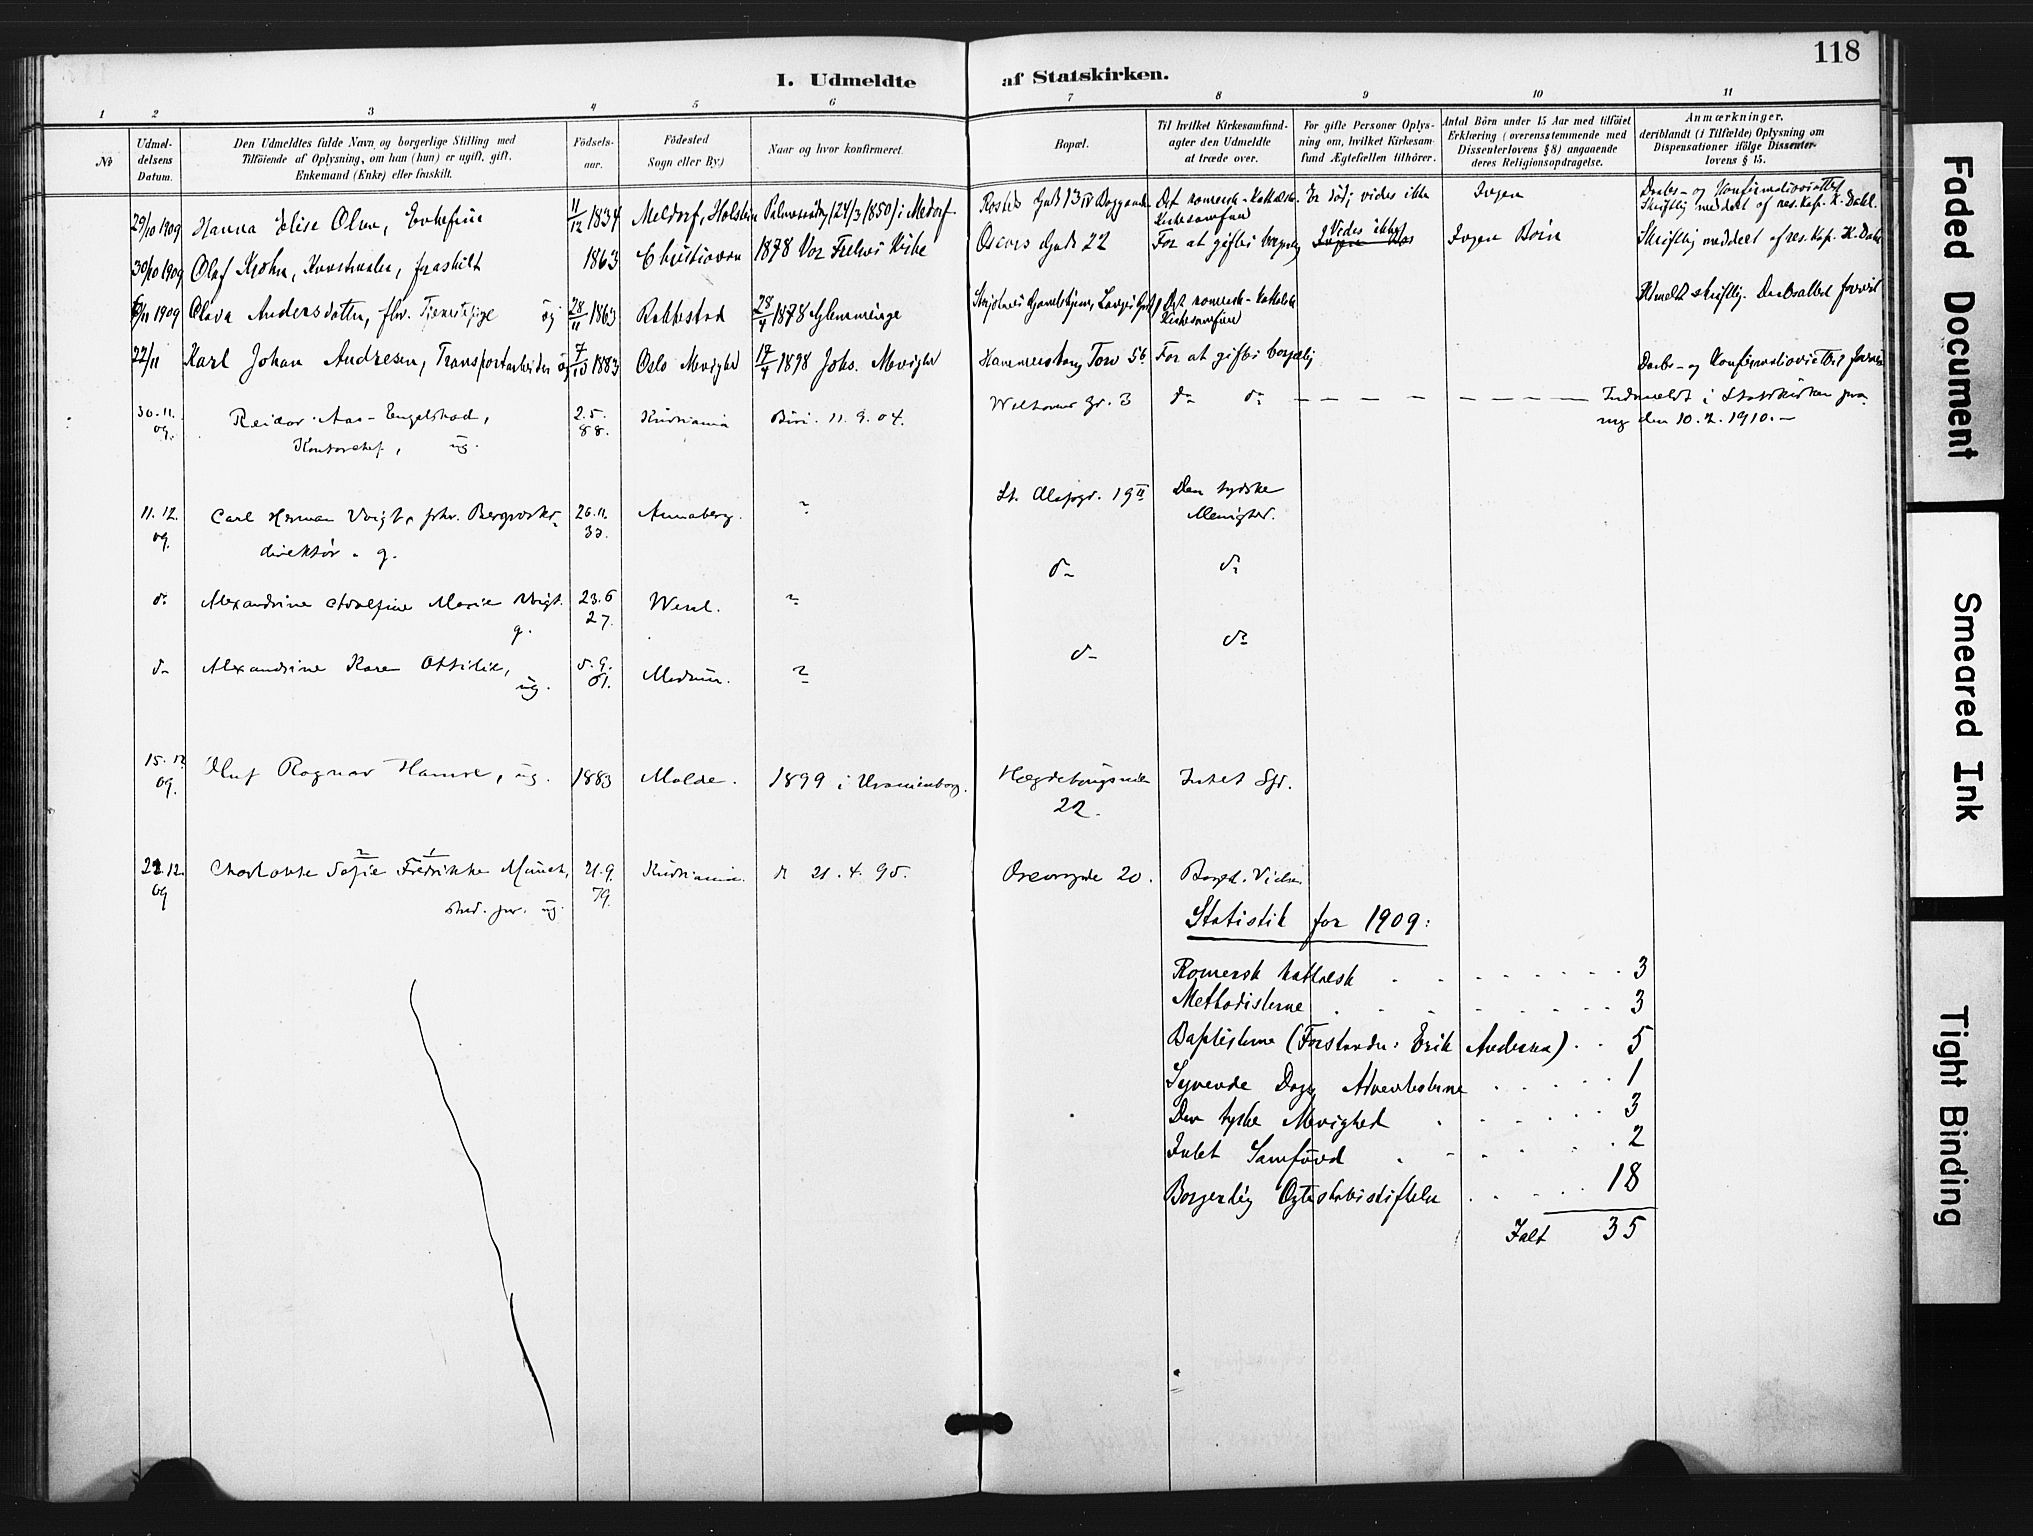 118
I. Udmeldte af Statskirken.
1 2 3 4 5 6 7 8 9 10 11
No
Udmel-
delsens
Datum.
Den Udmeldtes fulde Navn og borgerlige Stilling med
Tilföiende af Oplysning, om han (hun) er ugift, gift,
Enkemand (Enke) eller fraskilt.
Födsels-
aar.
Födested
Sogn eller By)
Naar og hvor konfirmeret.
Bopæl.
Til hvilket Kirkesamfund-
agter den Udmeldte
at træde over.
For gifte Personer Oplys-
ning om, hvilket Kirkesam-
fund Ægtefællen tilhörer.
Antal Börn under 15 Aar med tilföiet
Erklæring (overensstemmende med
Dissenterlovens § 8) angaaende
deres Religionsopdragelse.
Anmærkninger,
deriblandt (i Tilfælde) Oplysning om
Dispensationer ifölge Dissenter-
lovens § 15.
29/10 1909 Hanna Elise Olsen, Enkefrue 11/12 1834 Meldorf, Holstein Palmesøndag (24/3 1850) i Meldorf Det romersk-katholske Er død; vides ikke Ingen Daabs- og Konfirmationsattest
Kirkesamfund Skriftlig meddelt af res. Kap. K. Dahl.
30/10 1909 Olaf Krohn, Kunstmaler, fraskilt 1863 Christiania 1878 Vor Frelsers Kirke Oscars Gade 22 For at giftes borgerlig Vides ikke Ingen Børn Skriftlig meddelt af res. Kap. K. Dahl
6/11 1909 Olava Andersdatter, fhv. Tjenestepige ug 28/11 1863 Rakkestad 28/4 1878 Glemminge Det romersk-katholske Udmeldt skriftlig. Daabsattest forevist
Kirkesamfund
22/11 Karl Johan Andresen, Transportarbeider ug 7/10 1883 Oslo Menighed 17/4 1898 Johs. Menighed Hammersborg Torv 5b For at giftes borgerlig Daabs- og Konfirmationsattest forevist
30.11.09. Reidar Aas-Engelstad, 2.5.88. Kristiania Biri. 11.9.04. Welhavns gr. 3 do do Indmeldt i Statskirken paa
Kontorchef, ug. ny den 10.2.1910.-
11.12.09. Carl Herman Voigt, fhv. Bergverks- 26.11. Annaberg. ? St. Olafsgr. 19 II Den tydske
direktør. g. Menighed.
do Alexandrine Adolfine Marie Voigt. 23.6 27. Wesel. ? do do
g.
do Alexandrine Karen Ottilie, 5.9. 61. Modum. ? do do
ug.
15.12 09. Oluf Ragnar Hamre, ug. 1883 Molde. 1899 i Uranienborg. Hægdehaugsveien Intet Sfd.
22.
22.12.09 Charlotte Sofie Fredrikke Munch, 21.9.79. Kristiania. do 21.4.95. Oscarsgade 20. Borgl. Vielse
stud. jur. ug.
Statistik for 1909:
Romersk katholsk 3
Methodisterne 3
Baptisterne (Forstander: Erik Andersen) 5
Syvende Dags Adventisterne 1
Den tyske Menighed 3
Intet Samfund 2
Borgerlig Ægteskabsstiftelse 18
Ialt 35
Faded Document
Smeared Ink
Tight Binding